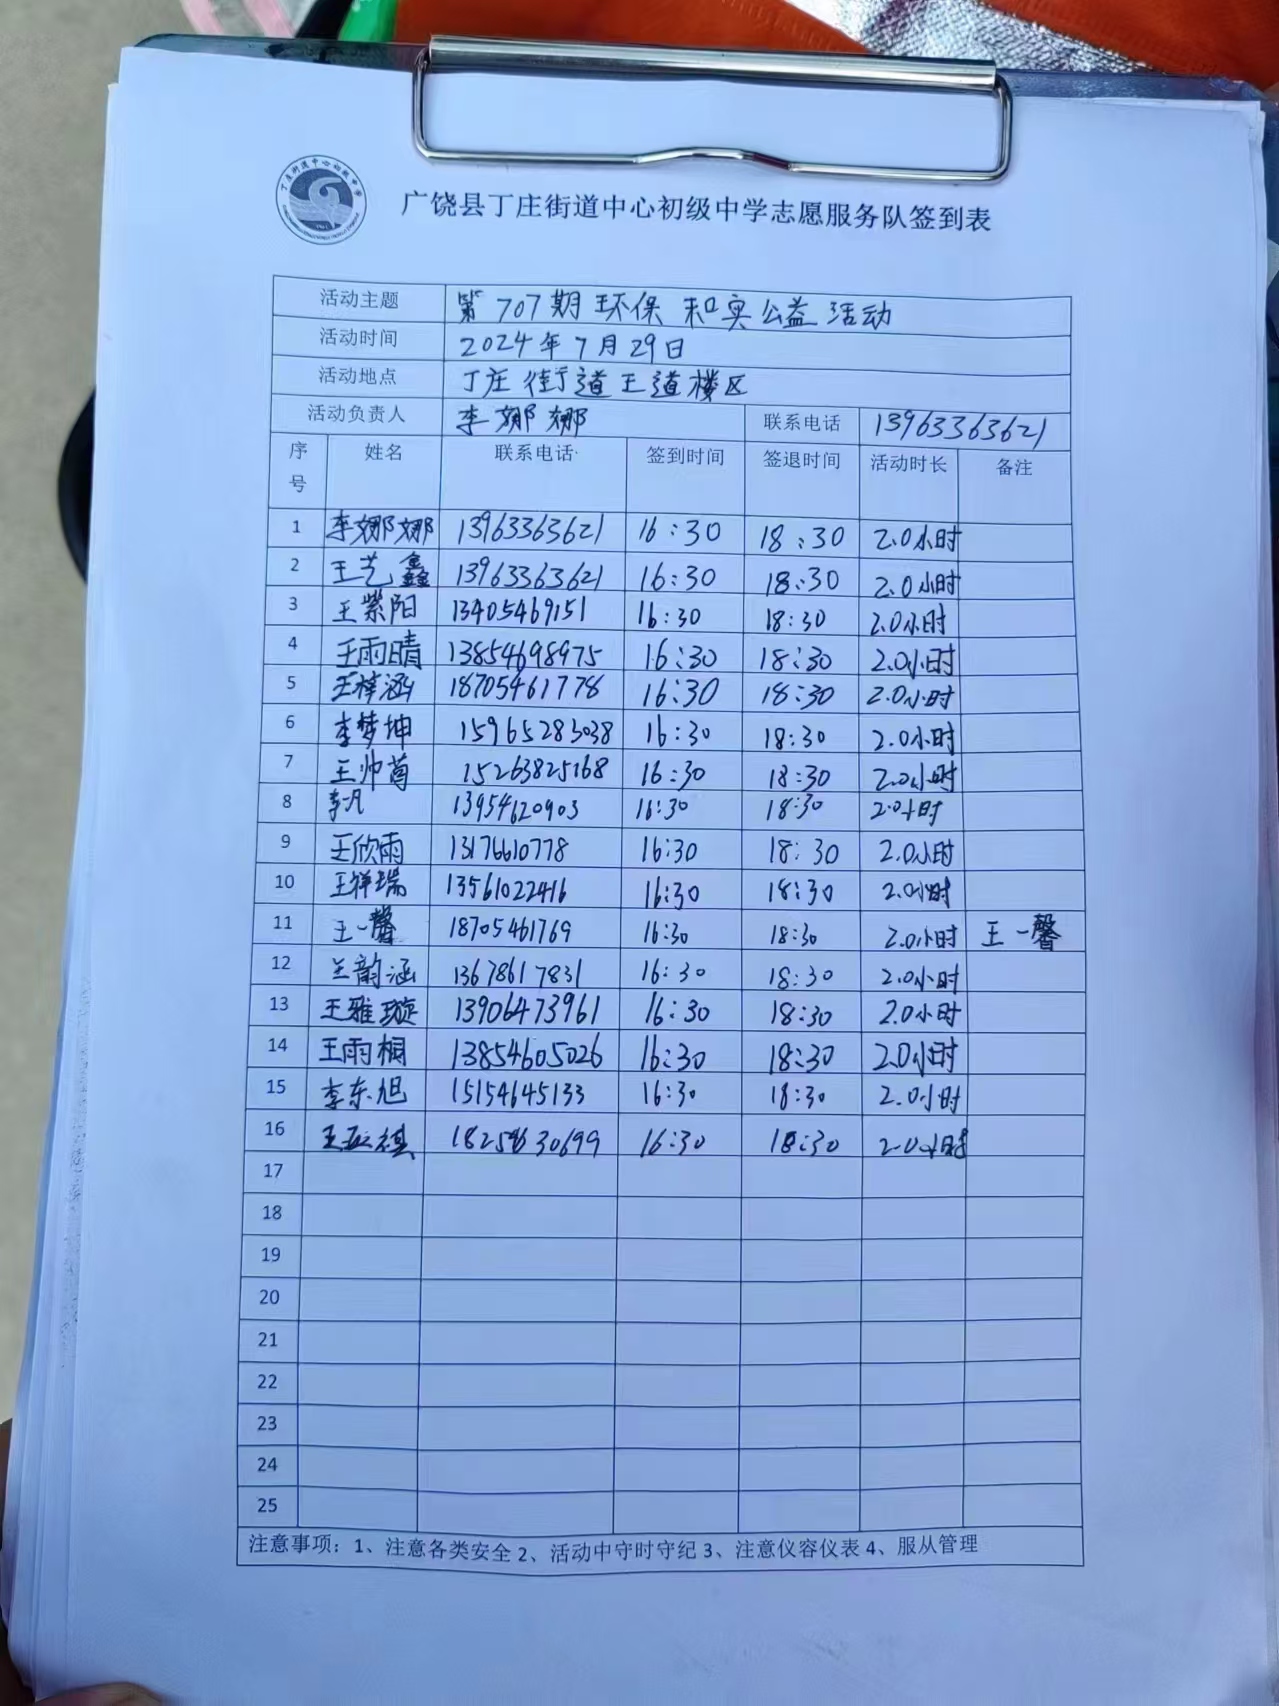 广饶县丁庄街道中心初级中学志愿服务队签到表
活动主题 第707期环保和实公益活动
活动时间 2024年7月29日
活动地点 丁庄街道王道楼区
活动负责人 李娜娜 联系电话 13963363621
序号 姓名 联系电话 签到时间 签退时间 活动时长 备注
1 李娜娜 13963363621 16:30 18:30 2.0小时
2 王艺鑫 13963363621 16:30 18:30 2.0小时
3 王紫阳 13405469151 16:30 18:30 2.0小时
4 王雨晴 13854698975 16:30 18:30 2.0小时
5 王梓涵 18705461778 16:30 18:30 2.0小时
6 李梦坤 15965283038 16:30 18:30 2.0小时
7 王帅 15263825168 16:30 18:30 2.0小时
8 李凡 13954620903 16:30 18:30 2.0小时
9 王欣雨 13176610778 16:30 18:30 2.0小时
10 王祥瑞 13561022416 16:30 18:30 2.0小时
11 王一馨 18705461769 16:30 18:30 2.0小时 王一馨
12 王韵涵 13678617831 16:30 18:30 2.0小时
13 王雅璇 13906473961 16:30 18:30 2.0小时
14 王雨桐 13854605026 16:30 18:30 2.0小时
15 李东旭 15154645133 16:30 18:30 2.0小时
16 16:30 18:30 2.0小时
17
18
19
20
21
22
23
24
25
注意事项：1、注意各类安全 2、活动中守时守纪 3、注意仪容仪表 4、服从管理